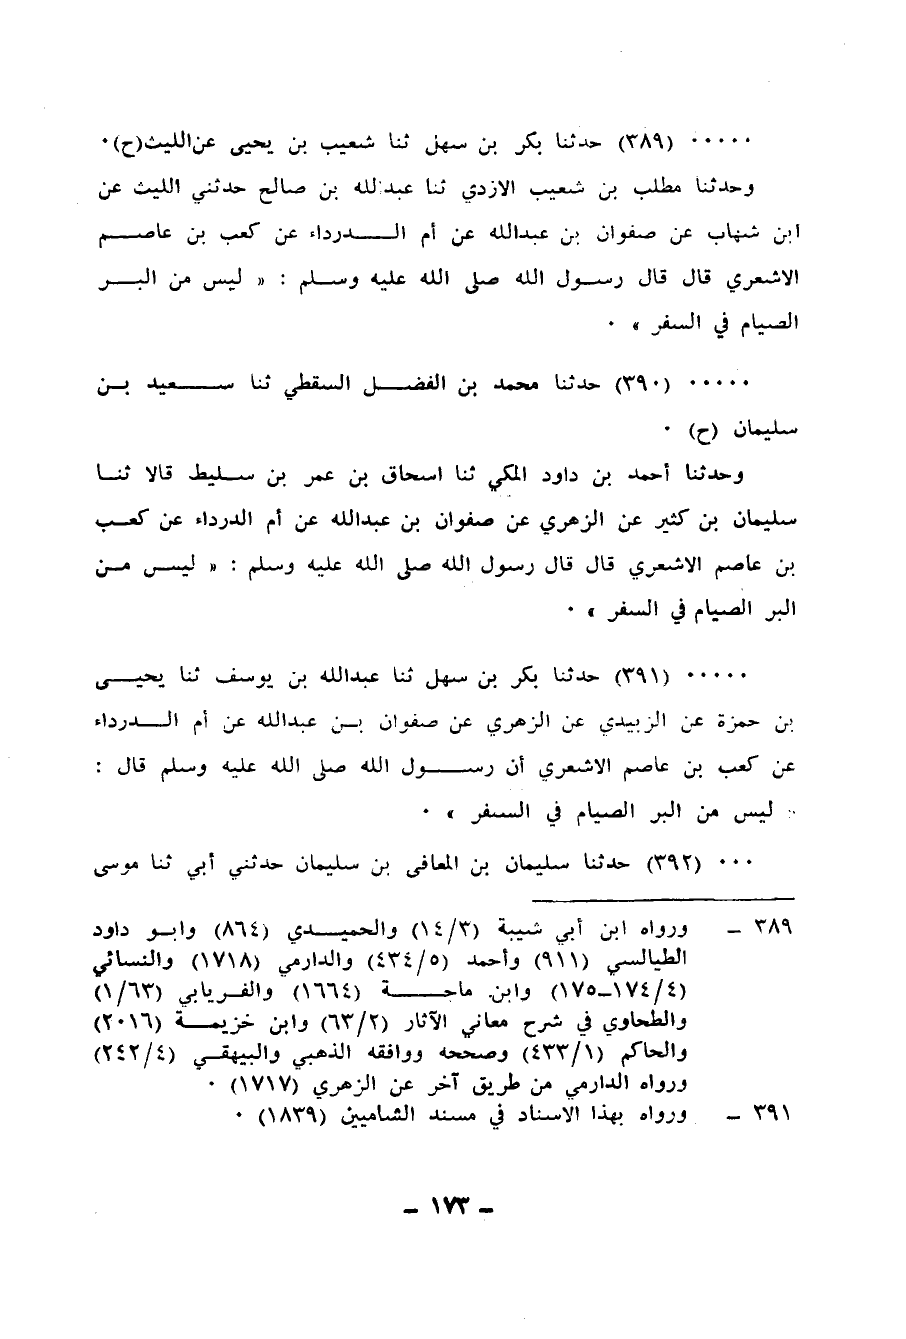 ..... (٣٨٩) حدثنا بكر بن سهل ثنا شعيب بن يحيى عن الليث(ح).
وحدثنا مطلب بن شعيب الازدي ثنا عبدالله بن صالح حدثني الليث عن
ابن شهاب عن صفوان بن عبدالله عن أم الدرداء عن كعب بن عاصم
الاشعري قال قال رسول الله صلى الله عليه وسلم : « ليس من البر
الصيام في السفر » .
..... (٣٩٠) حدثنا محمد بن الفضل السقطي ثنا سعيد بن
سليمان (ح) .
وحدثنا أحمد بن داود المكي ثنا اسحاق بن عمر بن سليط قالا ثنا
سليمان بن كثير عن الزهري عن صفوان بن عبدالله عن أم الدرداء عن كعب
بن عاصم الاشعري قال قال رسول الله صلى الله عليه وسلم : « ليس من
البر الصيام في السفر » .
..... (٣٩١) حدثنا بكر بن سهل ثنا عبدالله بن يوسف ثنا يحيى
بن حمزة عن الزبيدي عن الزهري عن صفوان بن عبدالله عن أم الدرداء
عن كعب بن عاصم الاشعري أن رسول الله صلى الله عليه وسلم قال :
« ليس من البر الصيام في السفر » .
... (٣٩٢) حدثنا سليمان بن المعافى بن سليمان حدثني أبي ثنا موسى
٣٨٩ – ورواه ابن أبي شيبة (١٤/٣) والحميدي (٨٦٤) وابو داود
الطيالسي (٩١١) وأحمد (٤٣٤/٥) والدارمي (١٧١٨) والنسائي
(١٧٤/٤–١٧٥) وابن ماجة (١٦٦٤) والفريابي (١/٦٣)
والطحاوي في شرح معاني الآثار (٦٣/٢) وابن خزيمة (٢٠١٦)
والحاكم (٤٣٣/١) وصححه ووافقه الذهبي والبيهقي (٢٤٢/٤)
ورواه الدارمي من طريق آخر عن الزهري (١٧١٧) .
٣٩١ – ورواه بهذا الاسناد في مسند الشاميين (١٨٣٩) .
– ١٧٣ –